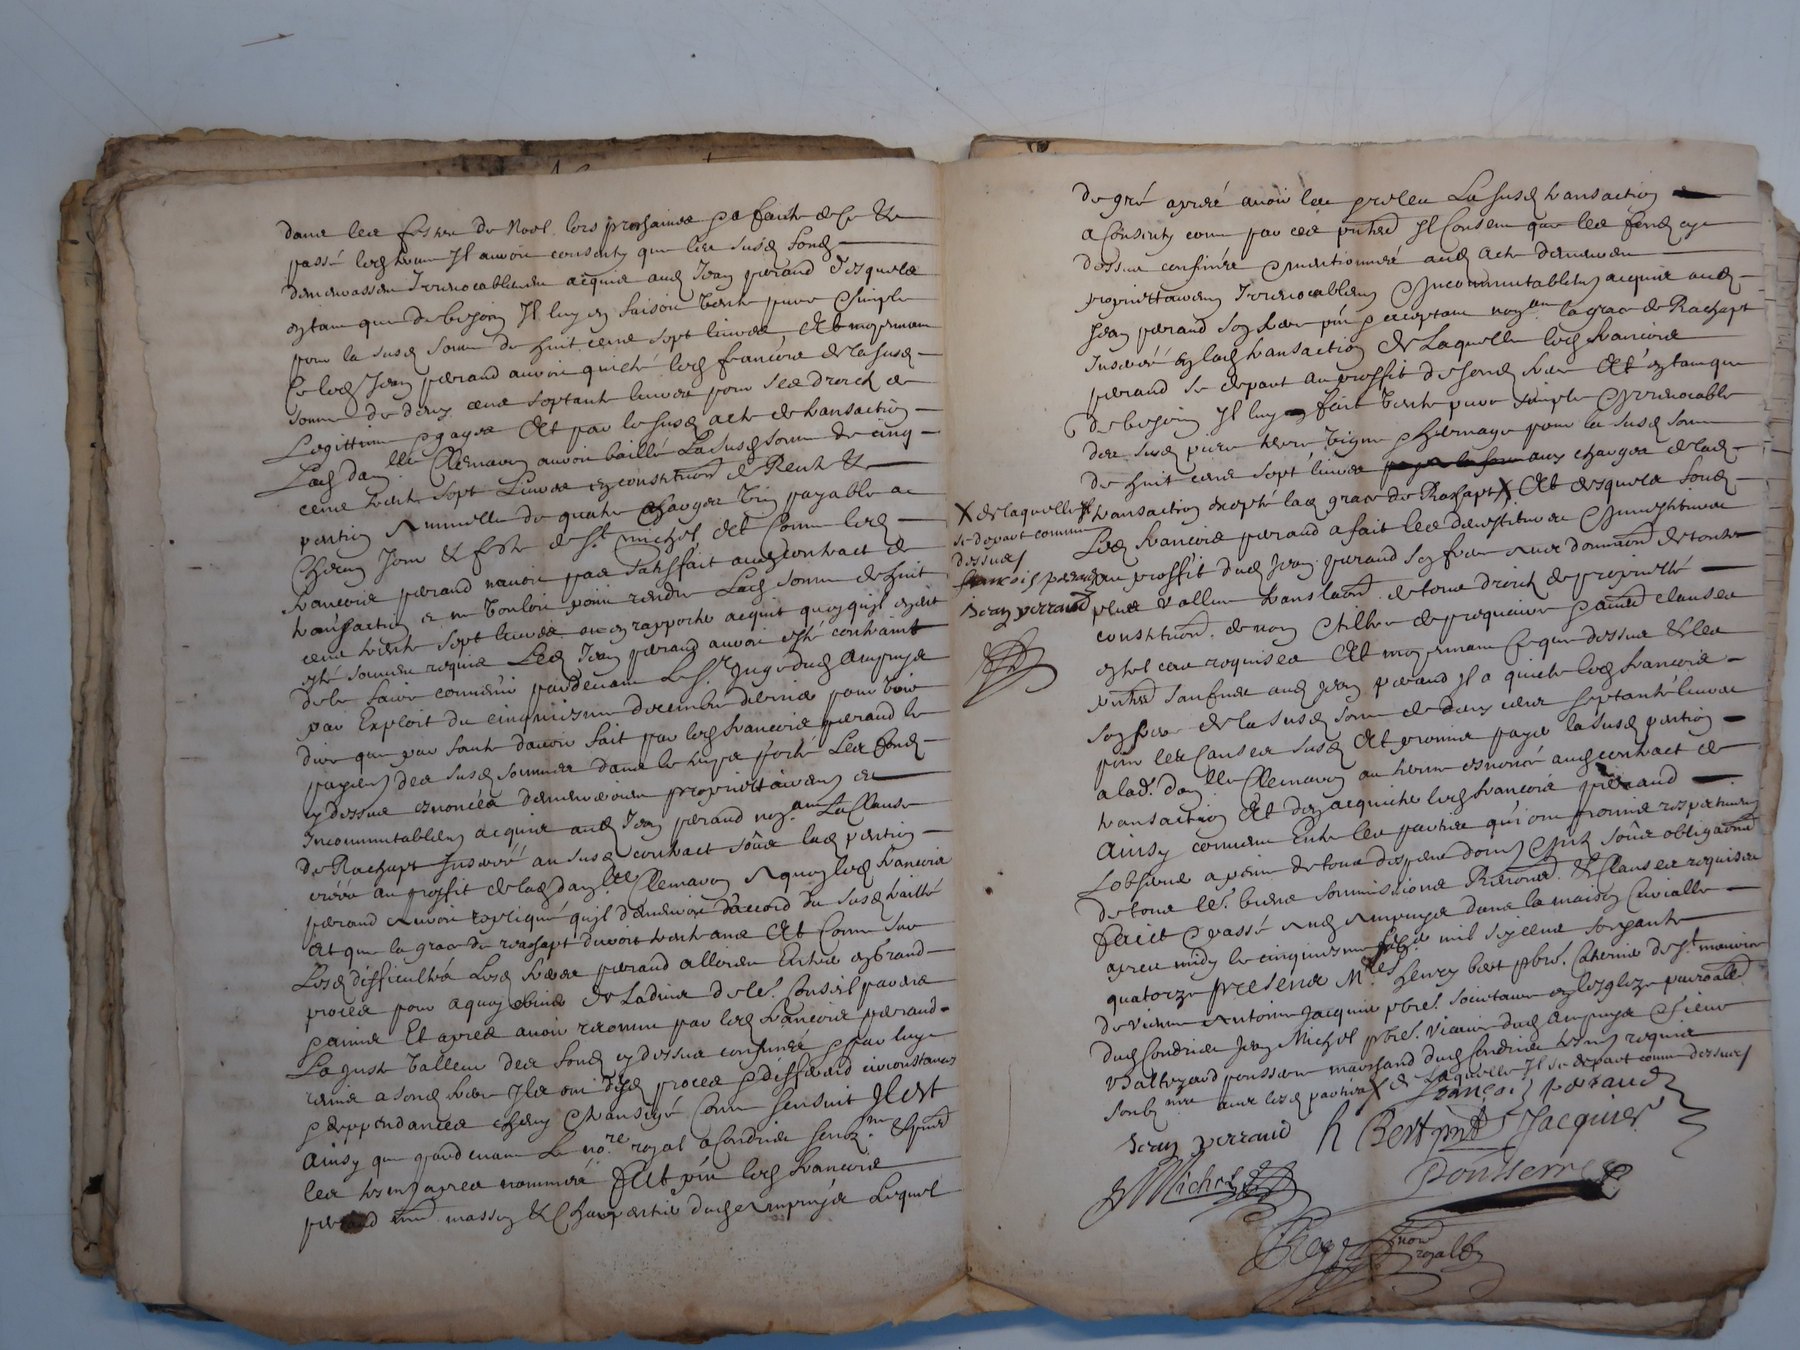 dans les festes de Noel lors prochaines & a faute de ce &
passé led terme Il auroit consenty que les susd fonds
demeurassent Irreuocablement acquis aud Jean peraud desquels
en tant que de besoin Il luy en faisoit vente pure & simple
pour la susd somme de huit cens sept liures Et moyennant
Ce led Jean peraud auroit quicté led francois de la susd
somme de deux cens septante liures pour ses droicts de
Legittime & gages Et par le susd acte de transaction
Lad dam.lle Clemancon auroit baillé La susd somme de cinq
cens trente sept Liures en constitution de Rente &
pention Annuelle de quatre charges vin payable a
Chacun Jour & feste de St michel Et Comme led
francois peraud n'auroit pas satisfait aud contract de
transaction & ne vouloit point rendre Lad somme de huit
cens trente sept liures ne en rapporter acquit quoy qu'il en eut
esté souuent requis Led Jean peraud auroit esté contraint
de le faire conuenir pardeuant Le Sr Juge dud Ampuys
par Exploit du cinquiesme decembre dernier pour voir
dire que par faute d'auoir fait par led francois peraud le
payement des susd sommes dans le temps porté Les fonds
cy dessus enoncés demeureroient proprietairement &
Incommutablement acquis aud Jean peraud non.ant La Clause
de Rachapt Inseré au susd contract sous lad pention
creée au proffit de lad dam.lle Clemancon A quoy led francois
peraud Auroit repliqué qu'il demeuroit d'accord du susd traitté
Et que la grace de rachapt duroit trente ans Et Comme sur
Lesd difficultés Lesd freres peraud alloient Entrer en grand
proces pour a quoy obuier de L'aduis de leur Conseil parens
& amis Et apres auoir reconnu par led francois peraud
La juste valleur des fonds cy dessus confinés & par luy
remis a sond frere Ils ont desd proces & differend circonstances
& deppendances cheuy & transigé Comme s'ensuit Il est
Ainsy que pardeuant Le no.re royal a Condrieu soubz.né & present
les tesmoins apres nommés fut pnt led francois
peraud masson & Charpentier dud Ampuys Lequel
de gré apres auoir leu & releu La susd transaction
a Consenty comme par ces pntes Il Consent que les fonds cy
dessus confinés & mentionnés aud acte demeurent
proprietairement Irreuocablement & Incommutablement acquis aud
Jean peraud son frere pnt & acceptant non.ant la grace de Rachapt
Inseré en lad transaction de Laquelle led francois
peraud se depart au proffit de sond frere Et en tant que
de besoin Il luy en fait vente pure simple & Irreuocable
des susd pieces terre vigne & hermage pour la susd somme
de huit cens sept liures aux charges de lad
transaction excepté lad grace de Rachapt X Et desquels fonds
X de laquelle Il
se depart comme
dessus
francois peraud
Jean perraud
Led francois peraud a fait les deuestitures & Inuestitures
au proffit dud Jean peraud son frere Auec donnation de toute
plus vallue translation de tous droicts de proprieté
constitution de nom & tiltre de precaire & autres clauses
en tel cas requises Et moyennant Ce que dessus & les
pntes saufues aud Jean peraud Il a quicté led francois
son frere de la susd somme de deux cens septante liures
pour les Causes susd Et promis payer la susd pention
a lad. dam.lle Clemancon au terme enoncé aud contract de
transaction Et d'en acquiter led francois peraud
Ainsy conuenu Entre les parties qui ont promis respectiuement
L'obseruer a peine de tous despens dom. & Int. sous obligations
de tous leurs biens soumissions Renons. & Clauses requises
Faict & passé aud Ampuys dans la maison Curialle
apres midy le cinquiesme mil six cens soixante
quatorze presens Mre henry bert pbre. Chanoine de St maurice
de vienne Antoine Jacquier pbre. societaire en l'esglize parroaille
dud Condrieu Jean Michel pbre. vicaire dud Ampuys & sieur
Balthezard pousserre marchand dud Condrieu tesmoins requis
soubz.nes auec lesd parties X de laquelle Il se depart comme dessus
francois peraud
Jean perraud h Bert pnt Jacquier
J Michel
Pousserre
no.re royal